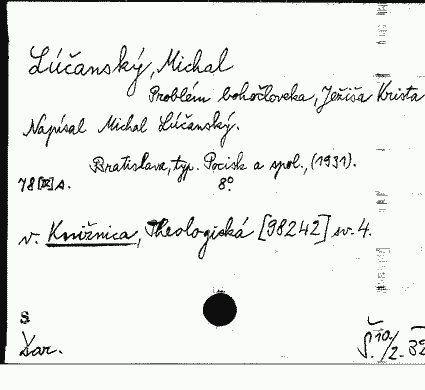 Lúčanský, Michal
Problém bohočloveka, Ježiša Krista
Napísal Michal Lúčanský.
Bratislava, typ. Pocisk a spol., (1931).
78 s. 8°
v. Knižnica, Theologická [98242] sv. 4.
S
Dar. Š. 10/2. 32